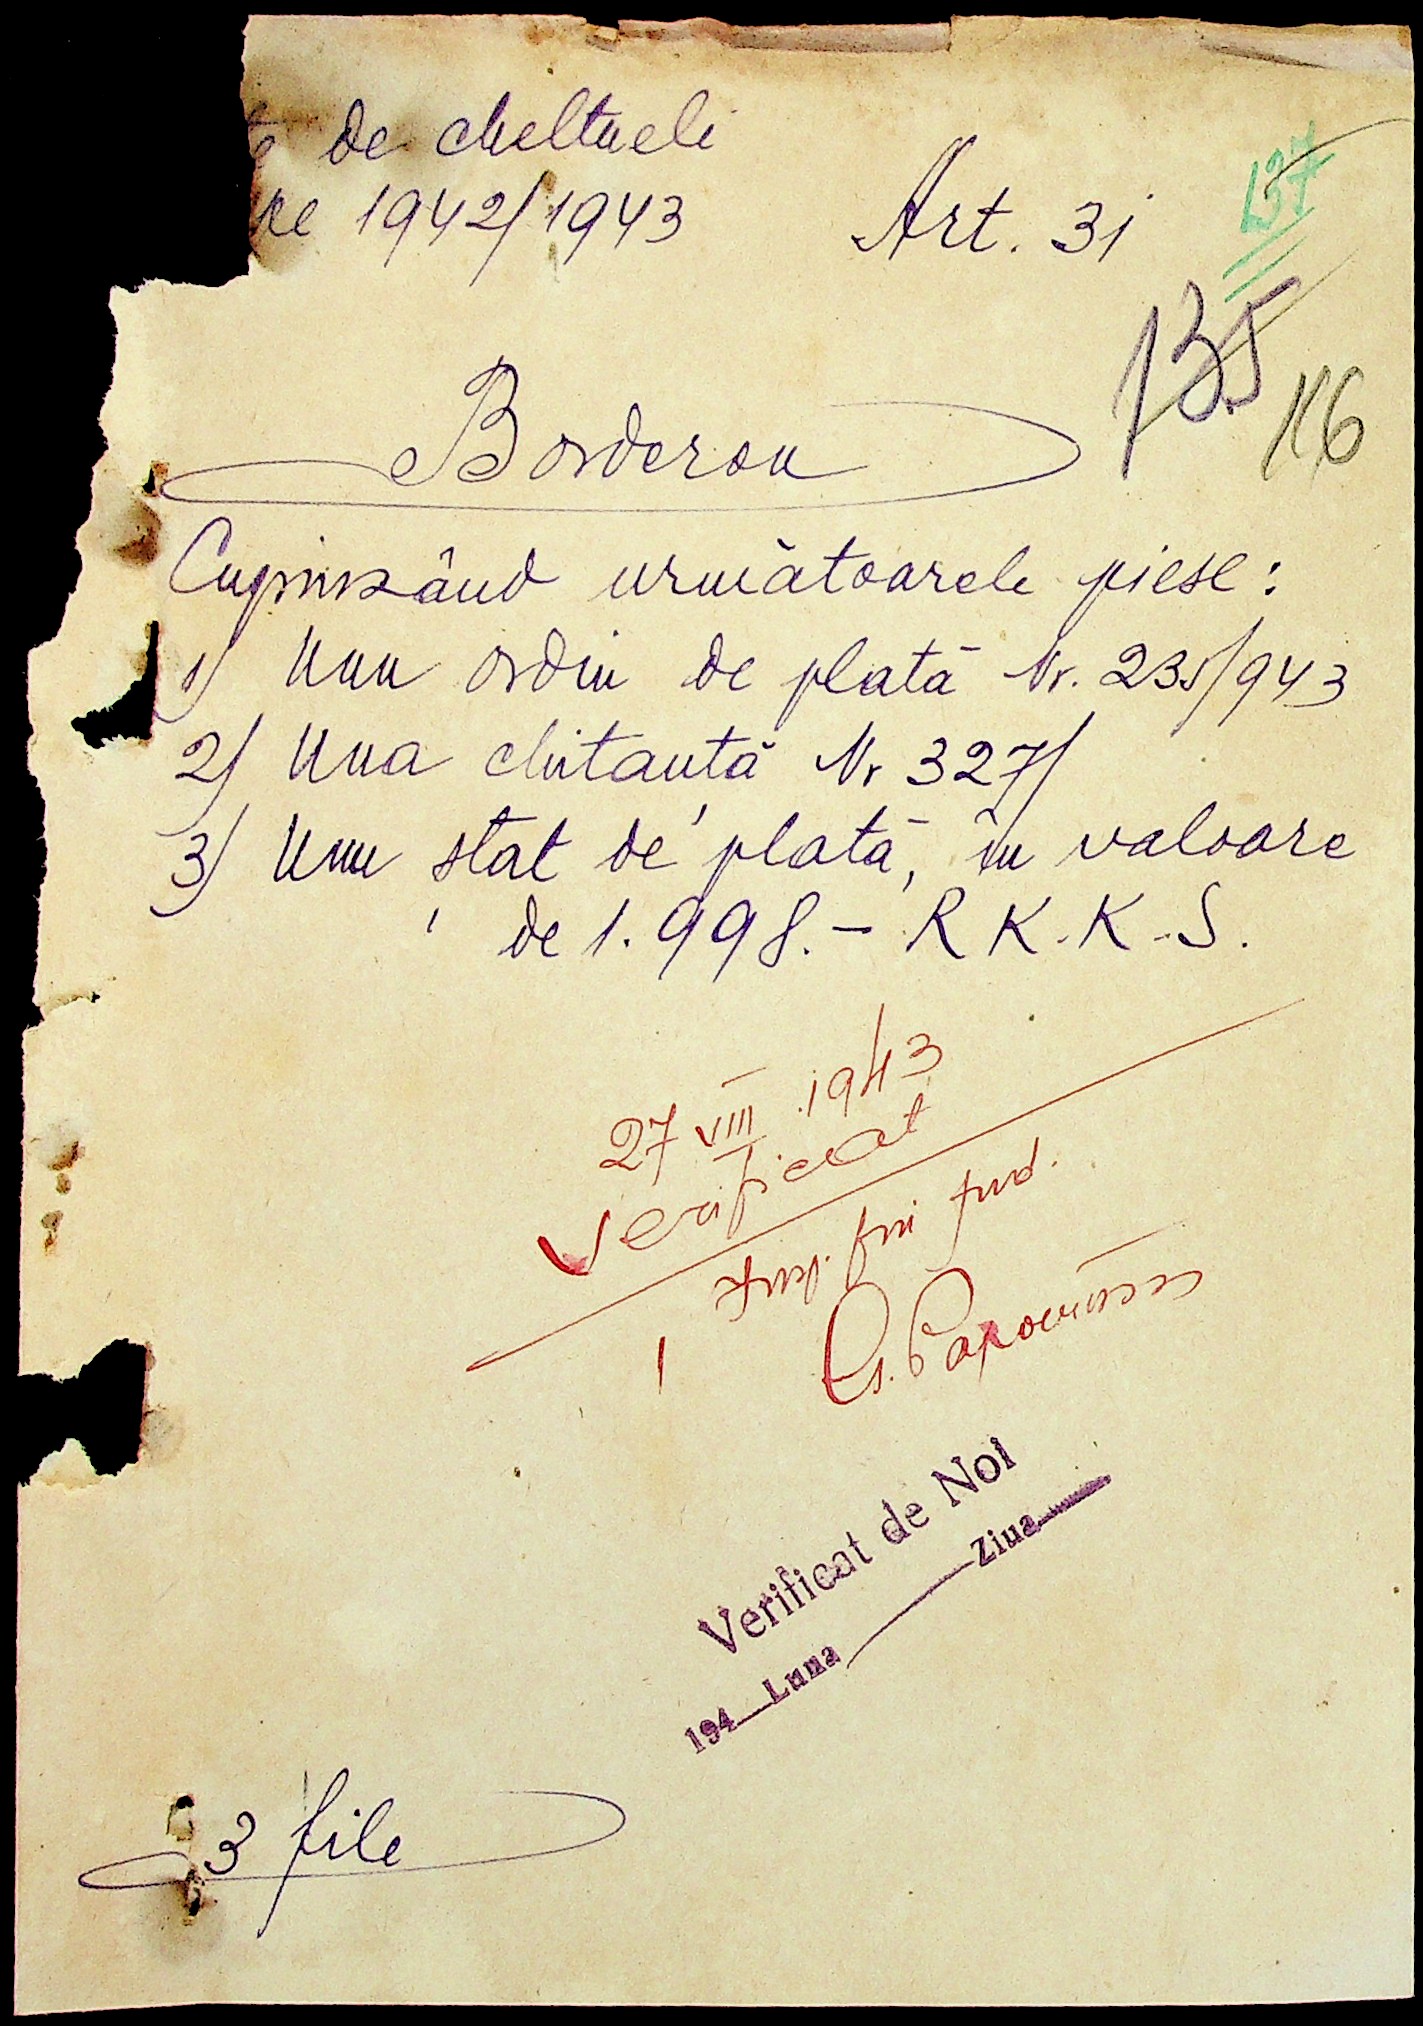 de cheltueli
pe 1942/1943
Art. 31
137
135
116
Borderou
Cuprinzând următoarele piese:
1) Unu ordin de plată Nr. 235/943
2) Una chitanță Nr 327/
3) Unu stat de plată, în valoare
de 1.998.- R K.K.S.
27 VIII 1943
Verificat
fin jud.
Verificat de Noi
194 Luna Ziua
3 file